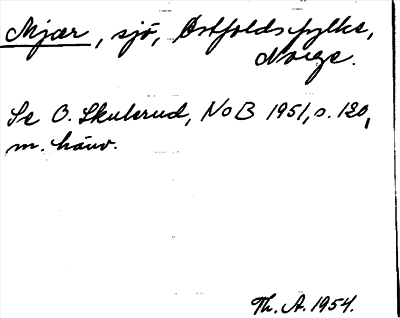 Mjær, sjö, Østfolds fylke,
Norge.
Se O. Skulerud, NoB 1951, s. 120,
m. hänv.
Th. A. 1954.